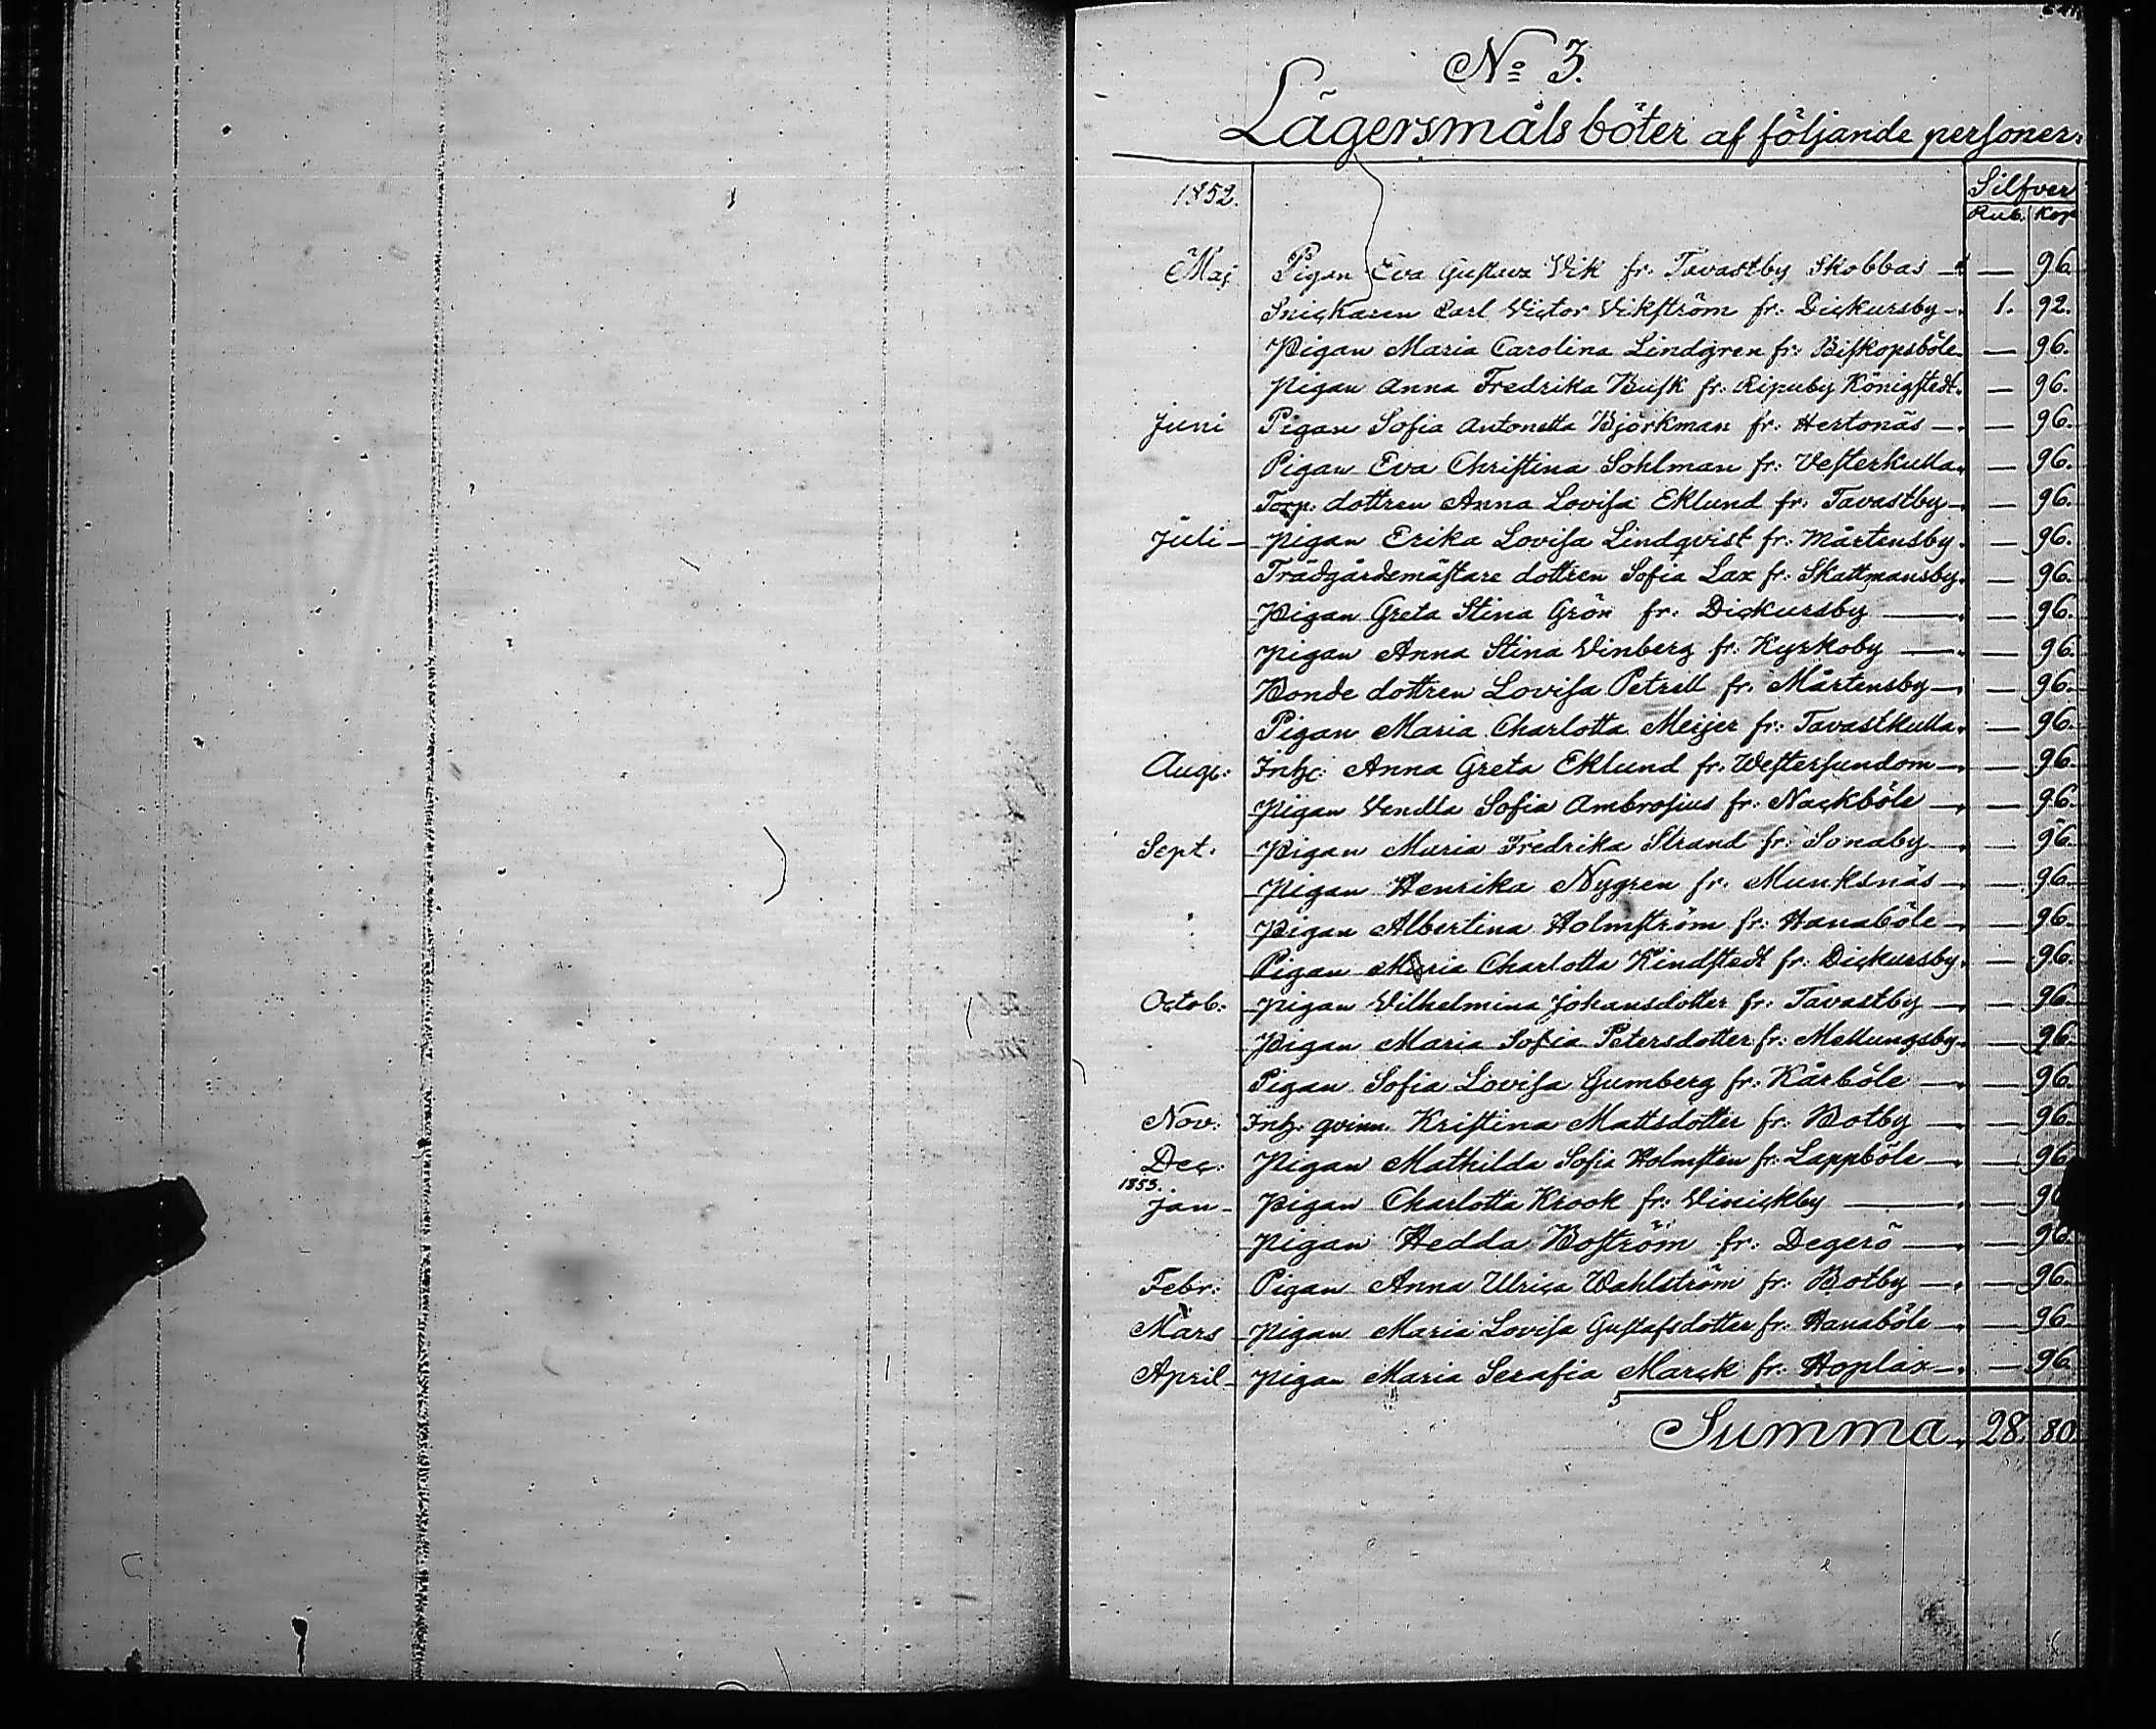 No 3.
Lägersmåls böter af följande personer:
1852. Silfver
Rub. Kop
Maj Pigan Eva Gustava Vik fr: Tavastby Skobbas — — 96.
Snickaren Carl Victor Vikström fr: Dickursby — 1. 92.
Pigan Maria Carolina Lindgren fr: Biskopsböle — 96.
Pigan Anna Fredrika Busk fr: Ripuby Königstedt. — 96.
Juni Pigan Sofia Antonetta Björkman fr: Hertonäs — — 96.
Pigan Eva Christina Sohlman fr: Vesterkulla. — 96.
Torp: dottren Anna Lovisa Eklund fr: Tavastby — — 96.
Juli — Pigan Erika Lovisa Lindqvist fr: Mårtensby. — 96.
Trädgårdsmästare dottren Sofia Lax fr: Skattmansby. — 96.
Pigan Greta Stina Grön fr: Dickursby — — 96.
Pigan Anna Stina Vinberg fr: Kyrkoby — — 96.
Bonde dottren Lovisa Petrell fr: Mårtensby — — 96.
Pigan Maria Charlotta Meijer fr: Tavastkulla. — 96.
Aug: Inh: Anna Greta Eklund fr: Westersundom — — 96.
Pigan Vendla Sofia Ambrosius fr: Nackböle — — 96.
Sept: Pigan Maria Fredrika Strand fr: Sonaby — — 96.
Pigan Henrika Nygren fr: Munksnäs — — 96.
Pigan Albertina Holmström fr: Hanaböle — — 96.
Pigan Maria Charlotta Kindstedt fr: Dickursby. — 96.
Octob: Pigan Vilhelmina Johansdotter fr: Tavastby — — 96.
Pigan Maria Sofia Petersdotter fr: Mellungsby. — 96.
Pigan Sofia Lovisa Gumberg fr: Kårböle — — 96.
Nov: Inh: qvinn. Kristina Mattsdotter fr: Botby — — 96.
Dec: Pigan Mathilda Sofia Holmsten fr: Lappböle — — 96.
1853.
Jan — Pigan Charlotta Krook fr: Vinickby — — 96
Pigan Hedda Boström fr: Degerö — — 96.
Febr: Pigan Anna Ulrica Wahlström fr: Botby — — 96.
Mars — Pigan Maria Lovisa Gustafsdotter fr: Hanaböle — — 96
April — Pigan Maria Serafia Marck fr: Hoplax — — 96
Summa. 28. 80.